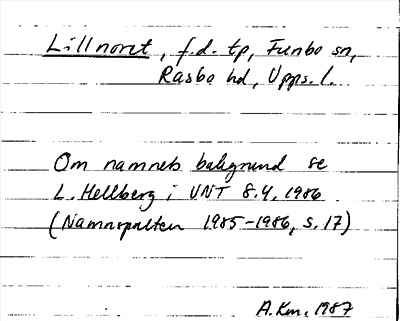 Lillnoret, f.d. tp, Funbo sn,
Rasbo hd, Upps. l.
Om namnets bakgrund se
L. Hellberg i UNT 8.4.1986
(Namnspalten 1985-1986, s. 17)
A.Km. 1987